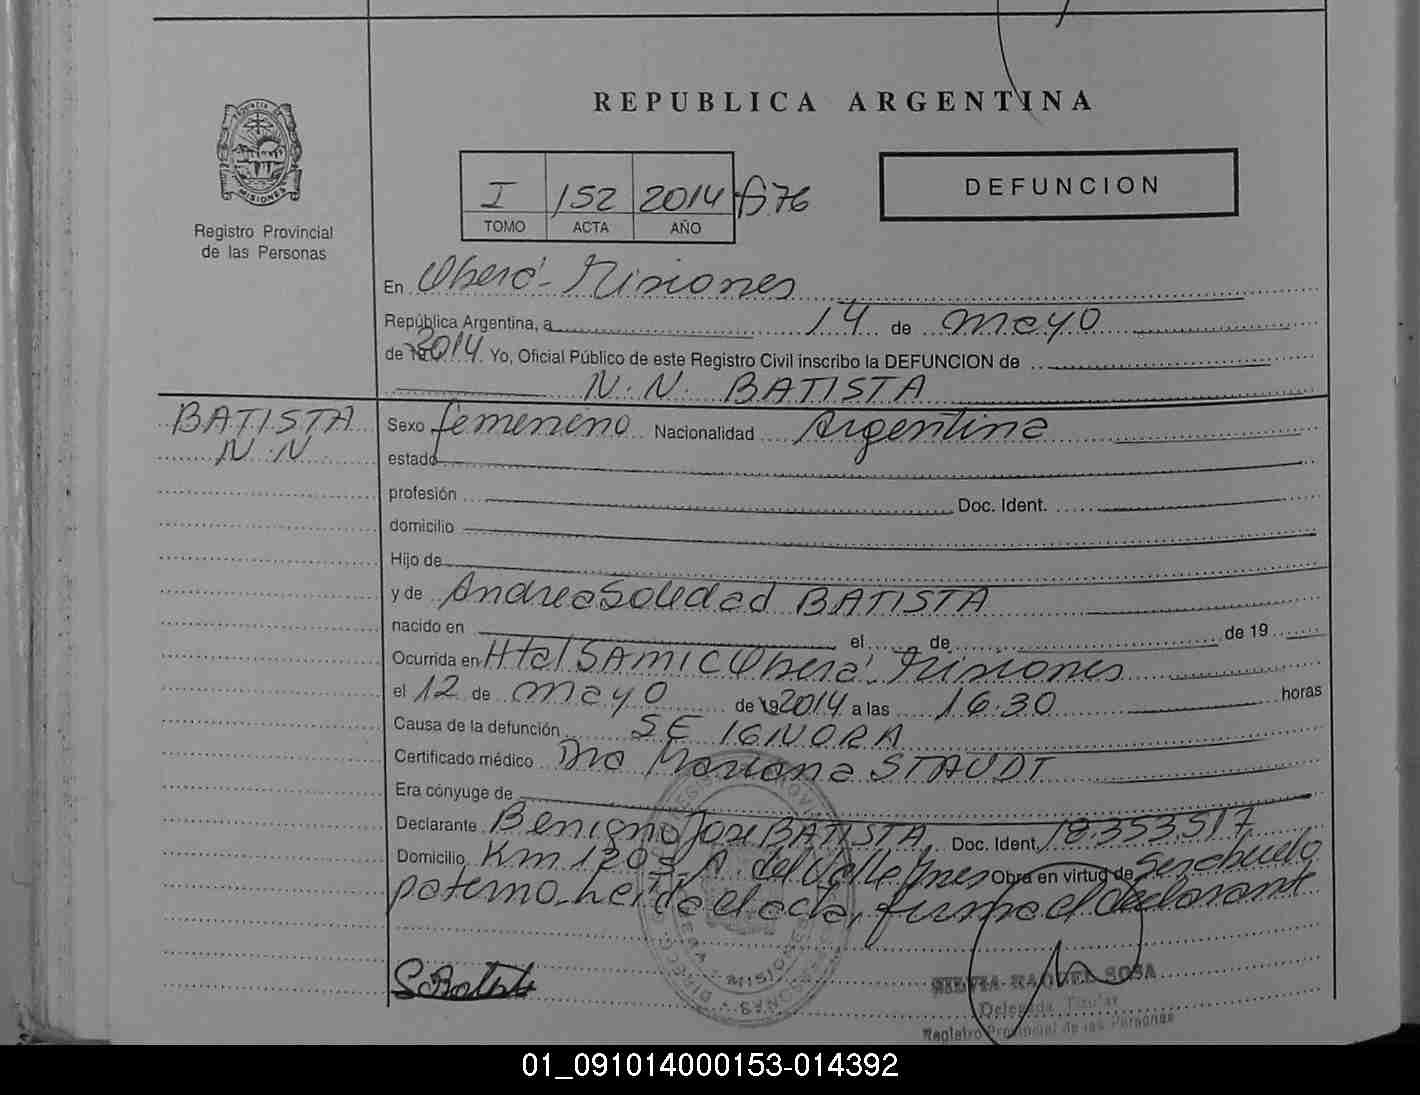 REPUBLICA ARGENTINA
PROVINCIA DE
MISIONES
Registro Provincial
de las Personas
I 152 2014 fº 76
TOMO ACTA AÑO
DEFUNCION
En Oberá - Misiones
República Argentina, a 14 de mayo
de 19 2014 Yo, Oficial Público de este Registro Civil inscribo la DEFUNCION de
N. N. BATISTA
BATISTA
N. N.
Sexo femenino Nacionalidad Argentina
estado
profesión Doc. Ident.
domicilio
Hijo de
y de Andrea Soledad BATISTA
nacido en el de de 19
Ocurrida en Htal SAMIC Oberá, Misiones
el 12 de mayo de 19 2014 a las 16.30 horas
Causa de la defunción SE IGNORA
Certificado médico Dra Mariana STAUDT
Era cónyuge de
Declarante Benigno Jose BATISTA Doc. Ident. 18.353.517
Domicilio Km 1203 A. del Valle Ynes Obra en virtud de Ser abuelo
paterno. Leída el acta, firma el declarante
SILVIA RAQUEL SOSA
Delegada Titular
Registro Provincial de las Personas
01_091014000153-014392